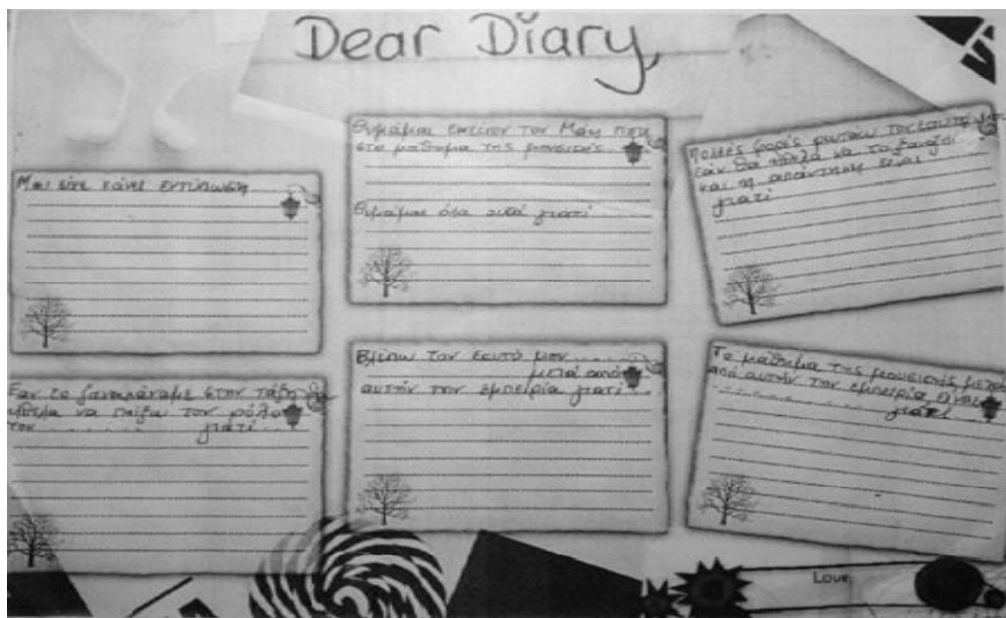 Dear Diary,
Μου είχε κάνει εντύπωση
Εάν το ξανακάναμε στην τάξη θα
ήθελα να παίξω τον ρόλο
του ........... γιατί ....
Θυμάμαι έντονα τον Μάη που
στο μάθημα της μουσικής
Θυμάμαι όλα αυτά γιατί
Βλέπω τον εαυτό μου ..........
μετά από
αυτήν την εμπειρία γιατί
Πολλές φορές ρωτάω τον εαυτό μου
εάν θα ήθελα να το ξαναζήσω
και η απάντηση είναι
γιατί
Το μάθημα της μουσικής μετά
από αυτήν την εμπειρία είναι
γιατί
Love,